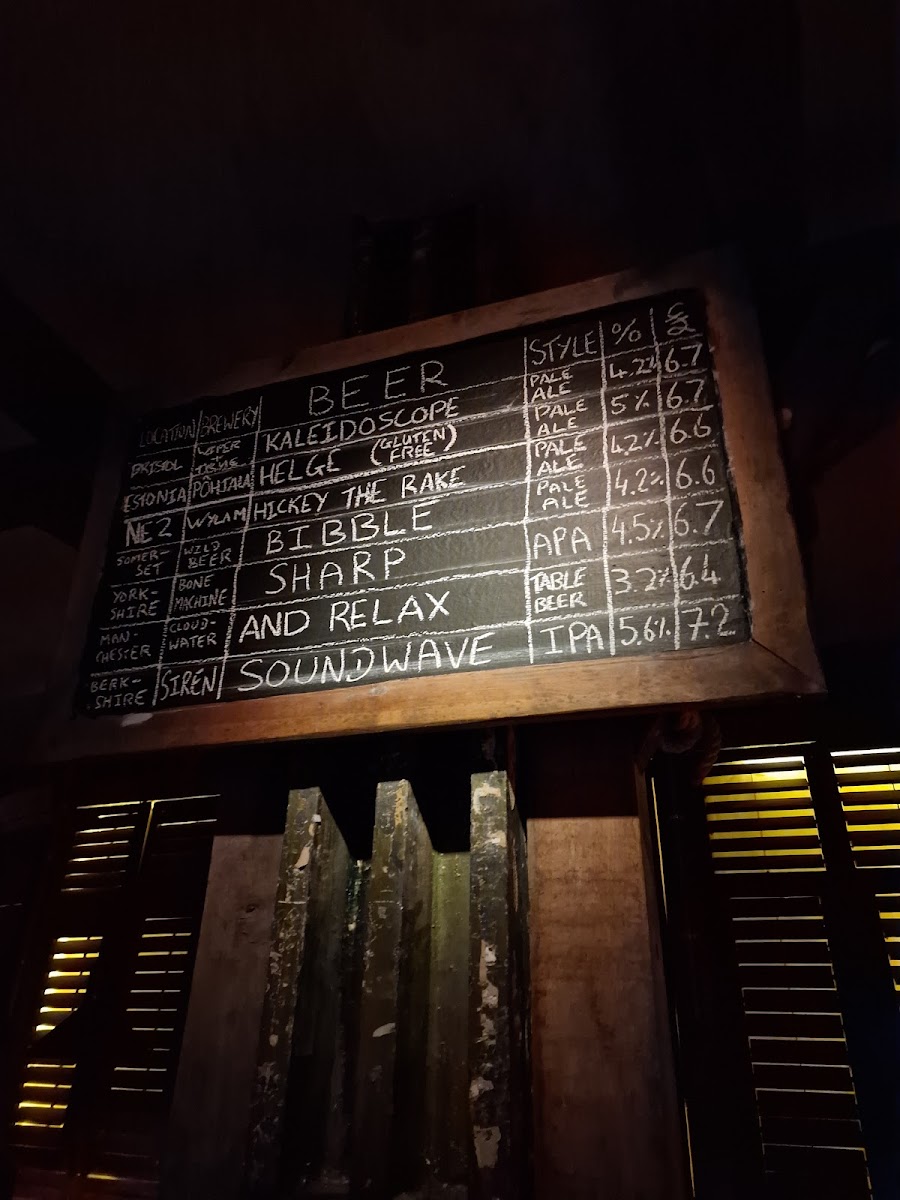 LOCATION BREWERY BEER STYLE % £
BRISTOL WIPER & TRUE KALEIDOSCOPE PALE ALE 4.2% 6.7
ESTONIA PÕHJALA HELGE (GLUTEN FREE) PALE ALE 5% 6.7
NE2 WYLAM HICKEY THE RAKE PALE ALE 4.2% 6.6
SOMER-SET WILD BEER BIBBLE PALE ALE 4.2% 6.6
YORK-SHIRE BONE MACHINE SHARP APA 4.5% 6.7
MAN-CHESTER CLOUD-WATER AND RELAX TABLE BEER 3.2% 6.4
BERK-SHIRE SIREN SOUNDWAVE IPA 5.6% 7.2